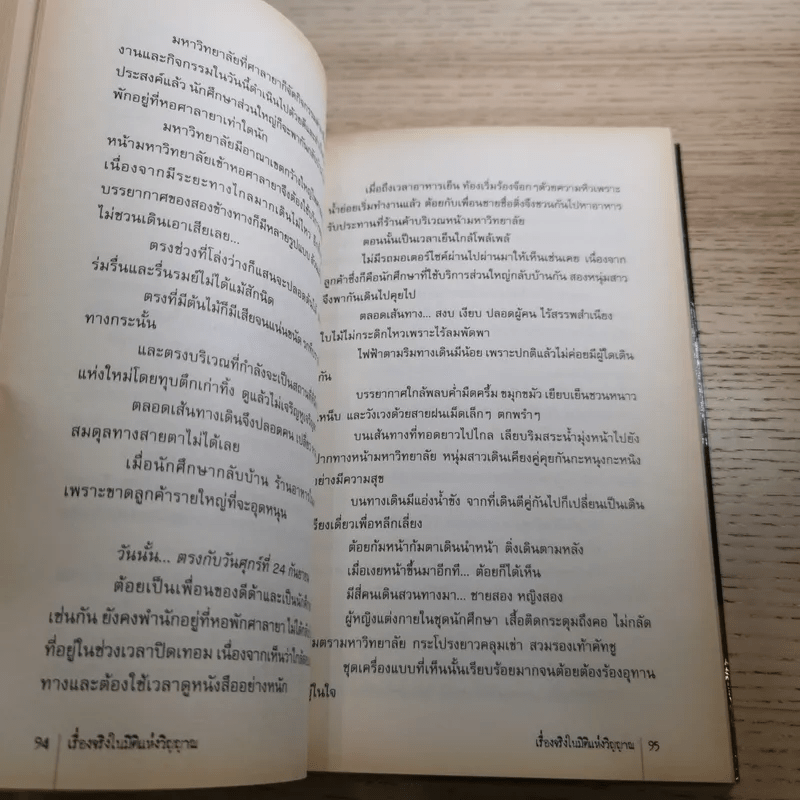 มหาวิทยาลัยที่ศาลายาก็จัดกิจกรรม
งานและกิจกรรมในวันนี้ดำเนินไปด้วยดีและ
ประสงค์แล้ว นักศึกษาส่วนใหญ่ก็จะพากัน
พักอยู่ที่หอศาลายาเท่าใดนัก
มหาวิทยาลัยมีอาณาเขตกว้างใหญ่
หน้ามหาวิทยาลัยเข้าหอศาลายาจึงต้องใช้
เนื่องจากมีระยะทางไกลมากเดินไม่ไหว
บรรยากาศของสองข้างทางก็มีหลายรูปแบบ
ไม่ชวนเดินเอาเสียเลย...
ตรงช่วงที่โล่งว่างก็แสนจะปลอด
ร่มรื่นและรื่นรมย์ไม่ได้แม้สักนิด
ตรงที่มีต้นไม้ก็มีเสียจนแน่นขนัด
ทางกระนั้น
และตรงบริเวณที่กำลังจะเป็นสถานที่
แห่งใหม่โดยทุบตึกเก่าทิ้ง ดูแล้วไม่เจริญหูเจริญ
ตลอดเส้นทางเดินจึงปลอดคน เปลี่ยว
สมดุลทางสายตาไม่ได้เลย
เมื่อนักศึกษากลับบ้าน ร้านอาหาร
เพราะขาดลูกค้ารายใหญ่ที่จะอุดหนุน
วันนั้น... ตรงกับวันศุกร์ที่ 24 กันยายน
ต้อยเป็นเพื่อนของดีด้าและเป็นนัก
เช่นกัน ยังคงพำนักอยู่ที่หอพักศาลายา ไม่ได้กลับ
ที่อยู่ในช่วงเวลาปิดเทอม เนื่องจากเห็นว่าใกล้
ทางและต้องใช้เวลาดูหนังสืออย่างหนัก
94 เรื่องจริงในมิติแห่งวิญญาณ
เมื่อถึงเวลาอาหารเย็น ท้องเริ่มร้องจ๊อกๆด้วยความหิวเพราะ
น้ำย่อยเริ่มทำงานแล้ว ต้อยกับเพื่อนชายชื่อติ่งจึงชวนกันไปหาอาหาร
รับประทานที่ร้านค้าบริเวณหน้ามหาวิทยาลัย
ตอนนั้นเป็นเวลาเย็นใกล้โพล้เพล้
ไม่มีรถมอเตอร์ไซค์ผ่านไปผ่านมาให้เห็นเช่นเคย เนื่องจาก
ลูกค้าซึ่งก็คือนักศึกษาที่ใช้บริการส่วนใหญ่กลับบ้านกัน สองหนุ่มสาว
จึงพากันเดินไปคุยไป
ตลอดเส้นทาง... สงบ เงียบ ปลอดผู้คน ไร้สรรพสำเนียง
ใบไม้ไม่กระดิกไหวเพราะไร้ลมพัดพา
ไฟฟ้าตามริมทางเดินมีน้อย เพราะปกติแล้วไม่ค่อยมีผู้ใดเดิน
กัน
บรรยากาศใกล้พลบค่ำมืดครึ้ม ขมุกขมัว เยียบเย็นชวนหนาว
เหน็บ และวังเวงด้วยสายฝนเม็ดเล็กๆ ตกพรำๆ
บนเส้นทางที่ทอดยาวไปไกล เลียบริมสระน้ำมุ่งหน้าไปยัง
ปากทางหน้ามหาวิทยาลัย หนุ่มสาวเดินเคียงคู่คุยกันกะหนุงกะหนิง
อย่างมีความสุข
บนทางเดินมีแอ่งน้ำขัง จากที่เดินตีคู่กันไปก็เปลี่ยนเป็นเดิน
เรียงเดี่ยวเพื่อหลีกเลี่ยง
ต้อยก้มหน้าก้มตาเดินนำหน้า ติ่งเดินตามหลัง
เมื่อเงยหน้าขึ้นมาอีกที... ต้อยก็ได้เห็น
มีสี่คนเดินสวนทางมา... ชายสอง หญิงสอง
ผู้หญิงแต่งกายในชุดนักศึกษา เสื้อติดกระดุมถึงคอ ไม่กลัด
มตรามหาวิทยาลัย กระโปรงยาวคลุมเข่า สวมรองเท้าคัทชู
ชุดเครื่องแบบที่เห็นนั้นเรียบร้อยมากจนต้อยต้องร้องอุทาน
อยู่ในใจ
เรื่องจริงในมิติแห่งวิญญาณ 95